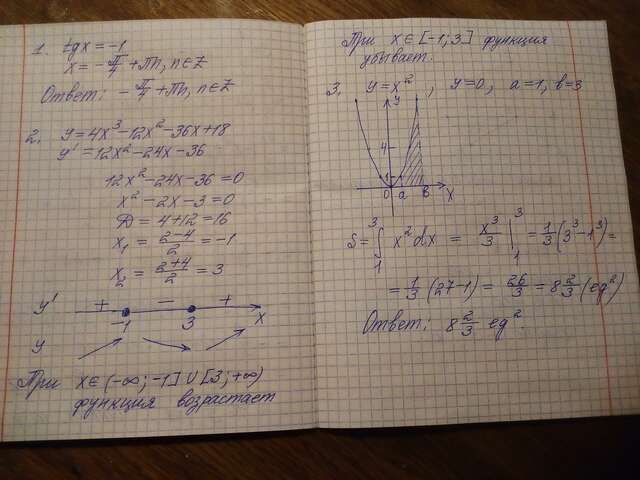 1. tgx = -1
x = -π/4 + πn, n∈Z
Ответ: -π/4 + πn, n∈Z
2. y = 4x³-12x²-36x+18
y' = 12x²-24x-36
12x²-24x-36=0
x²-2x-3=0
D = 4+12=16
x₁ = (2-4)/2 = -1
x₂ = (2+4)/2 = 3
y' + - +
-1 3 x
y
При x∈(-∞; -1] ∪ [3; +∞)
функция возрастает
При x∈[-1; 3] функция
убывает.
3. y=x², y=0, a=1, b=3
y
4
1
0 a b x
S = ∫₁³ x² dx = x³/3 |₁³ = 1/3 (3³-1³) =
= 1/3 (27-1) = 26/3 = 8 2/3 (ед²)
Ответ: 8 2/3 ед².